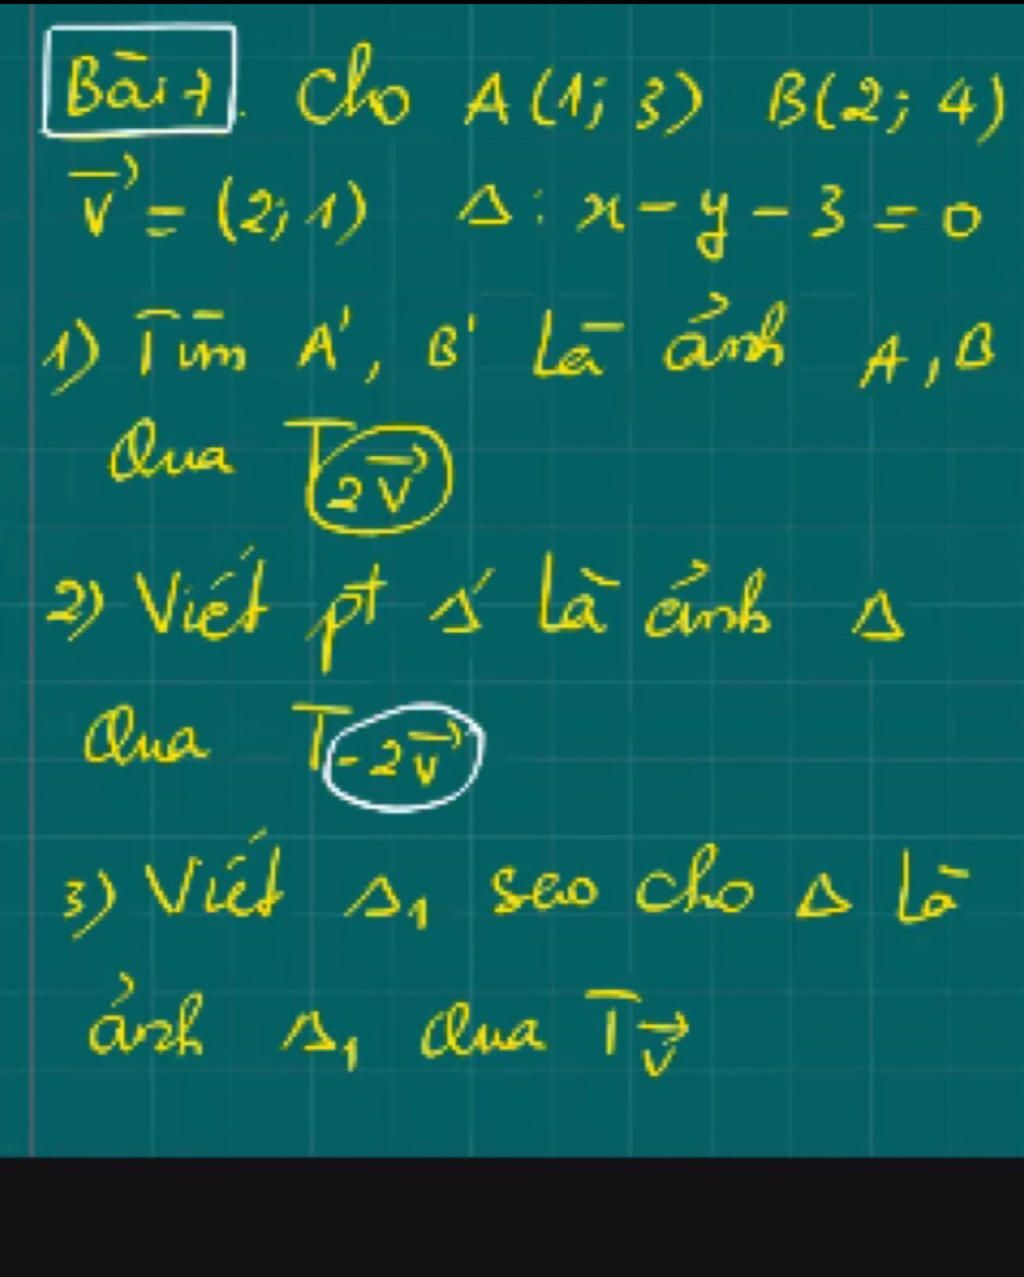 Bài 7. Cho A(1; 3) B(2; 4)
v⃗ = (2; 1) Δ: x - y - 3 = 0
1) Tìm A', B' Là ảnh A, B
Qua T2v⃗
2) Viết pt Δ' Là ảnh Δ
Qua T-2v⃗
3) Viết Δ1 sao cho Δ Là
ảnh Δ1 Qua Tv⃗